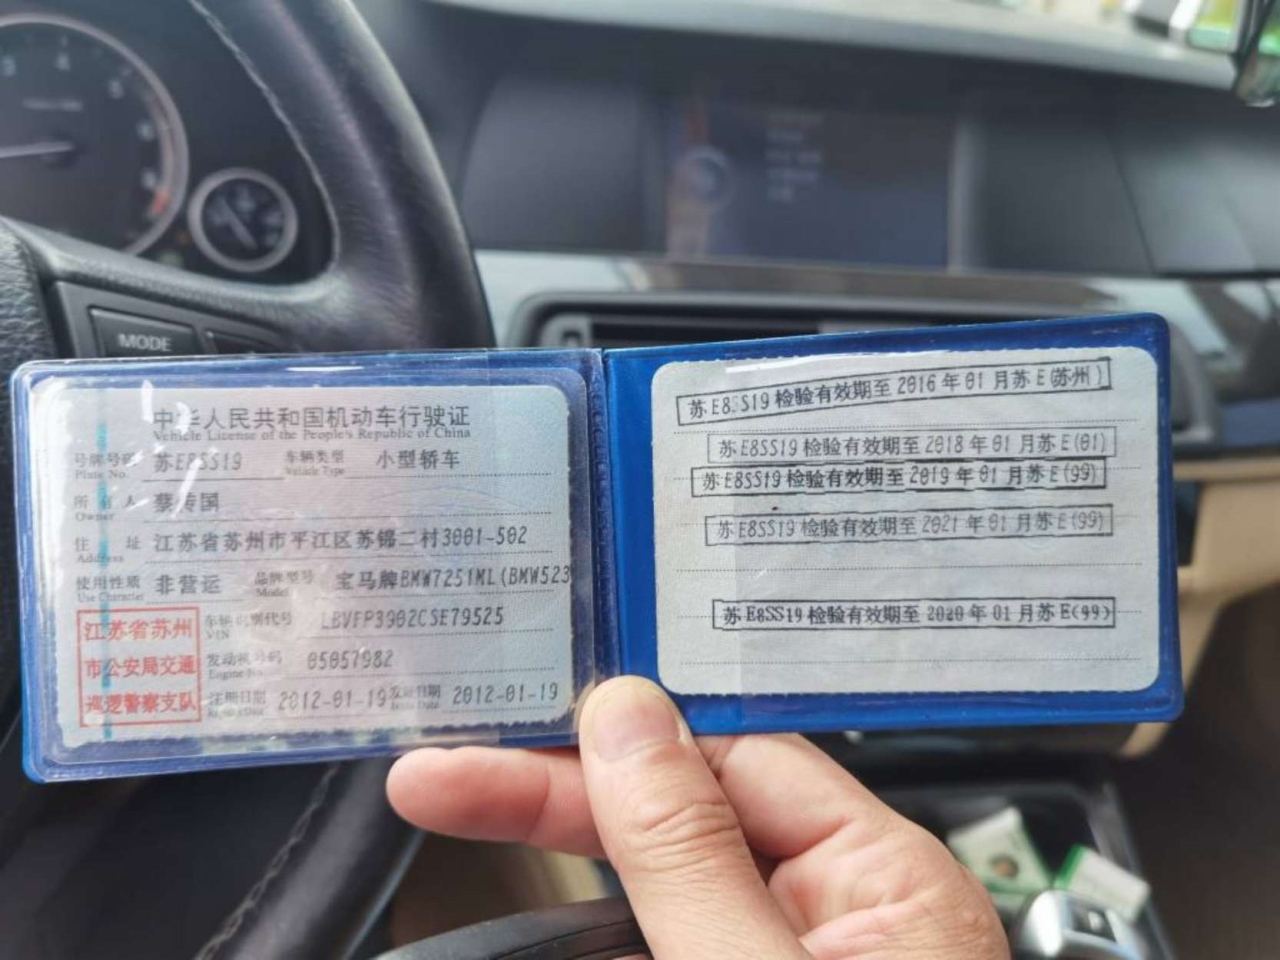 MODE
中华人民共和国机动车行驶证
Vehicle License of the People's Republic of China
号牌号码 苏E8SS19 车辆类型 小型轿车
Plate No. Vehicle Type
所有人 蔡传国
Owner
住址 江苏省苏州市平江区苏锦二村3001-502
Address
使用性质 非营运 品牌型号 宝马牌BMW7251ML(BMW523
Use Character Model
江苏省苏州
市公安局交通
巡逻警察支队
车辆识别代号 LBVFP3902CSE79525
VIN
发动机号码 05057982
Engine No.
注册日期 2012-01-19 发证日期 2012-01-19
Issue Date
苏E8SS19检验有效期至2016年01月苏E(苏州)
苏E8SS19检验有效期至2018年01月苏E(01)
苏E8SS19检验有效期至2019年01月苏E(99)
苏E8SS19检验有效期至2021年01月苏E(99)
苏E8SS19检验有效期至2020年01月苏E(99)